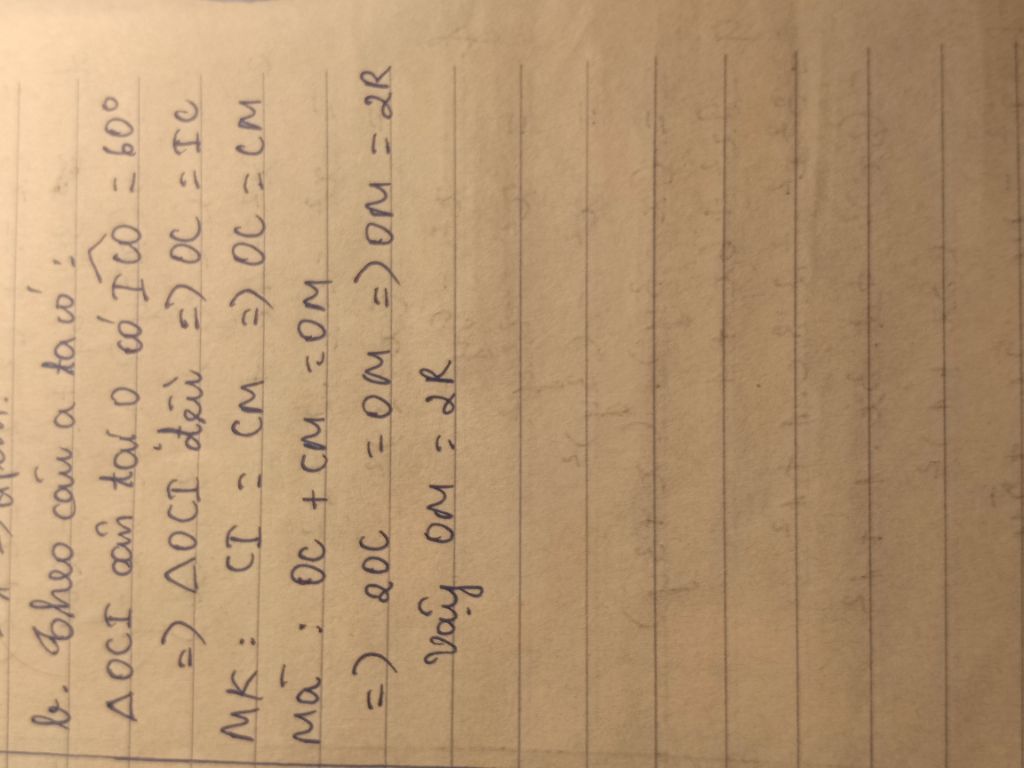 b. Theo câu a ta có :
Δ OCI cân tại O có ICO = 60°
=> Δ OCI đều => OC = IC
MK : CI = CM => OC = CM
Mà : OC + CM = OM
=> 2OC = OM => OM = 2R
Vậy OM = 2R